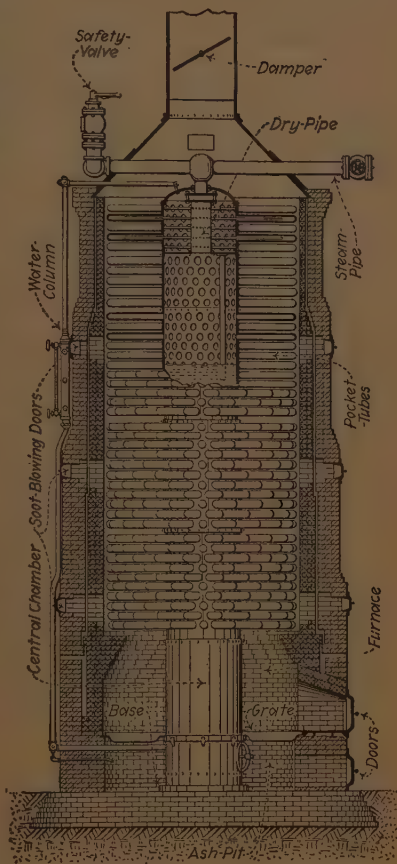 Safety-
Valve
Damper
Dry-Pipe
Water-
Column
Steam-
Pipe
Soot-Blowing Doors
Pocket
-Tubes
Central Chamber
Furnace
Base
Grate
Doors
Ash-Pit